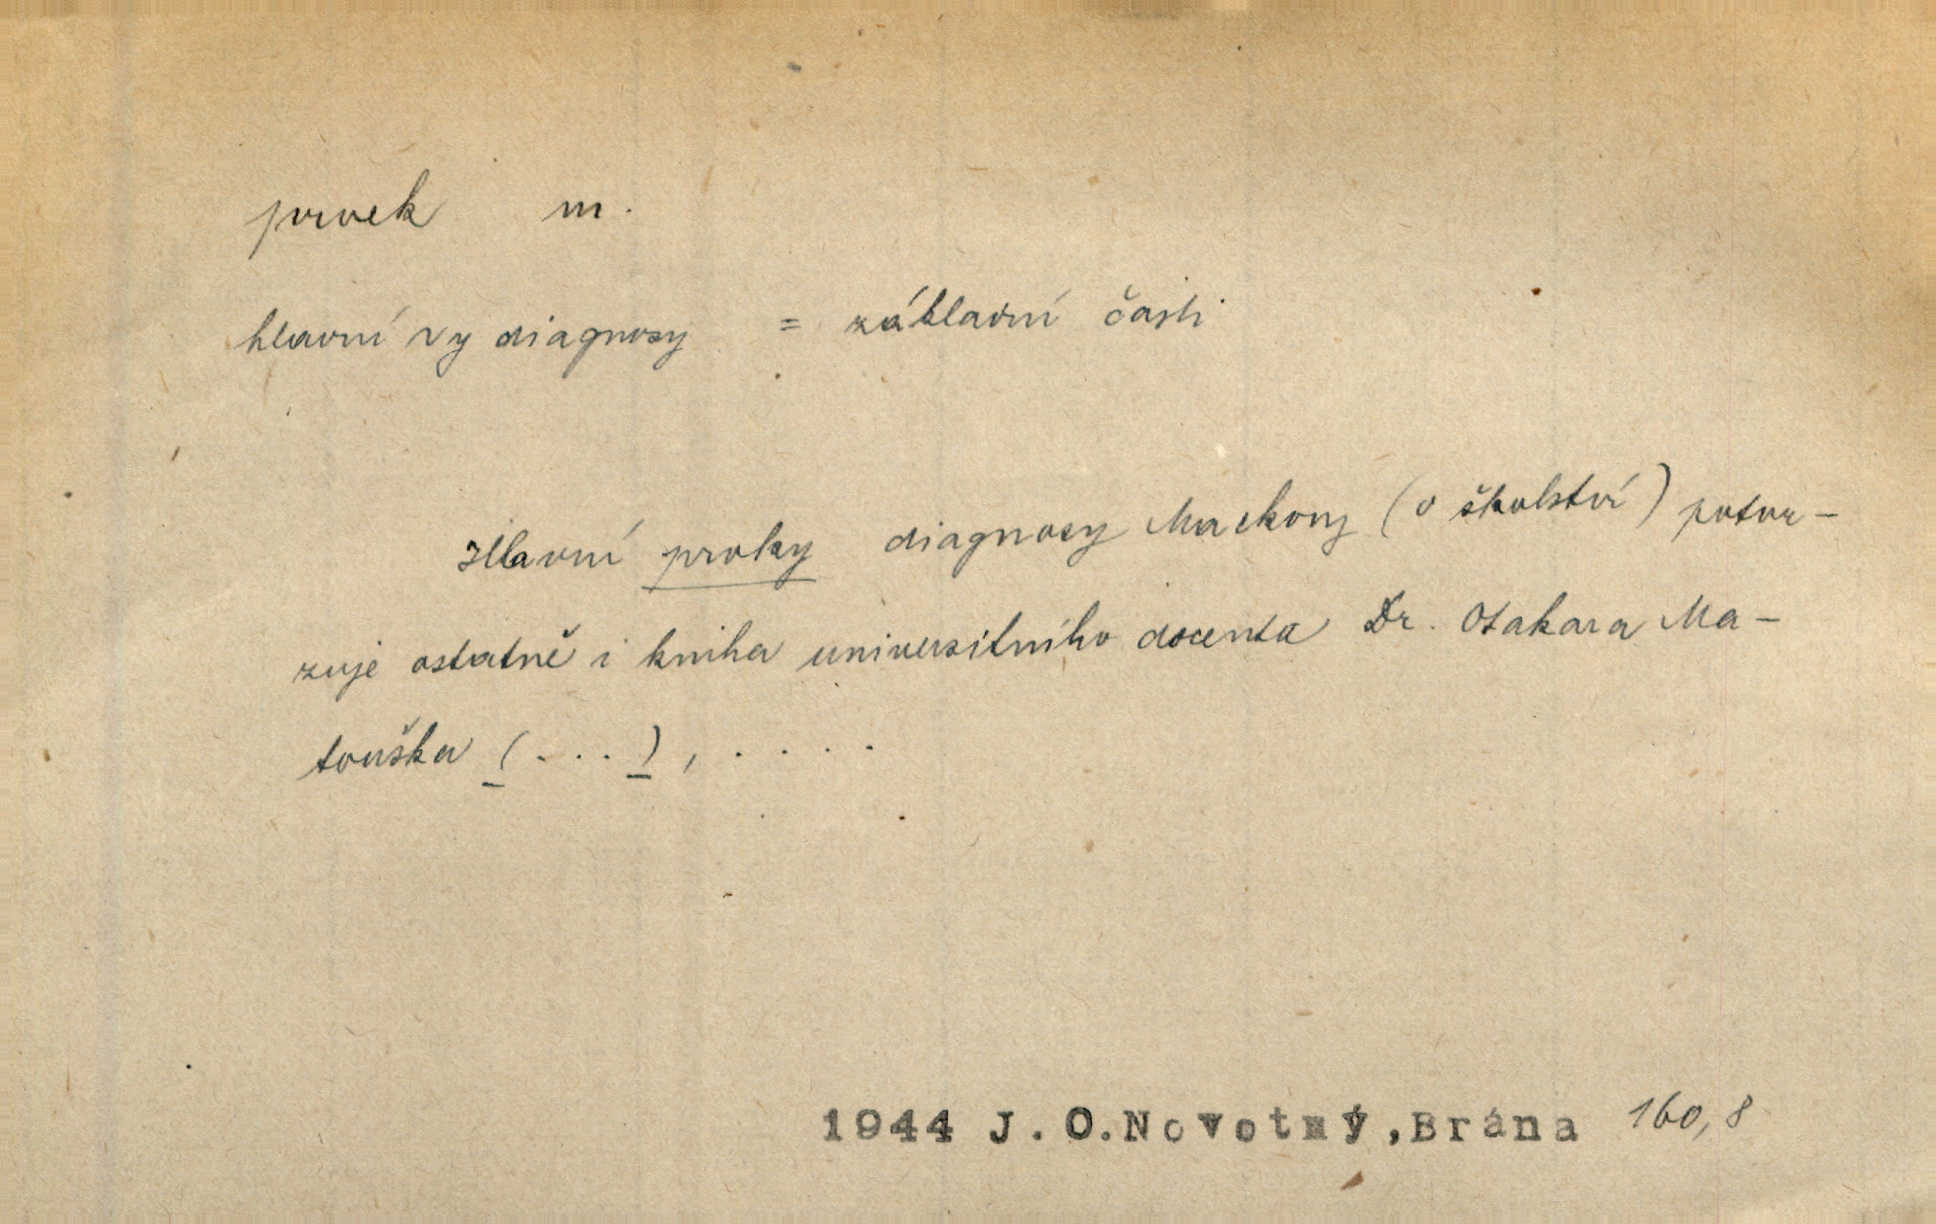 prvek m.
hlavní vy diagnosy = základní části
Hlavní prvky diagnosy Mackovy (o školství) potvr-
zuje ostatně i kniha universitního docenta Dr. Otakara Ma-
touška (...), .....
1944 J.O.Novotný,Brána 160,8